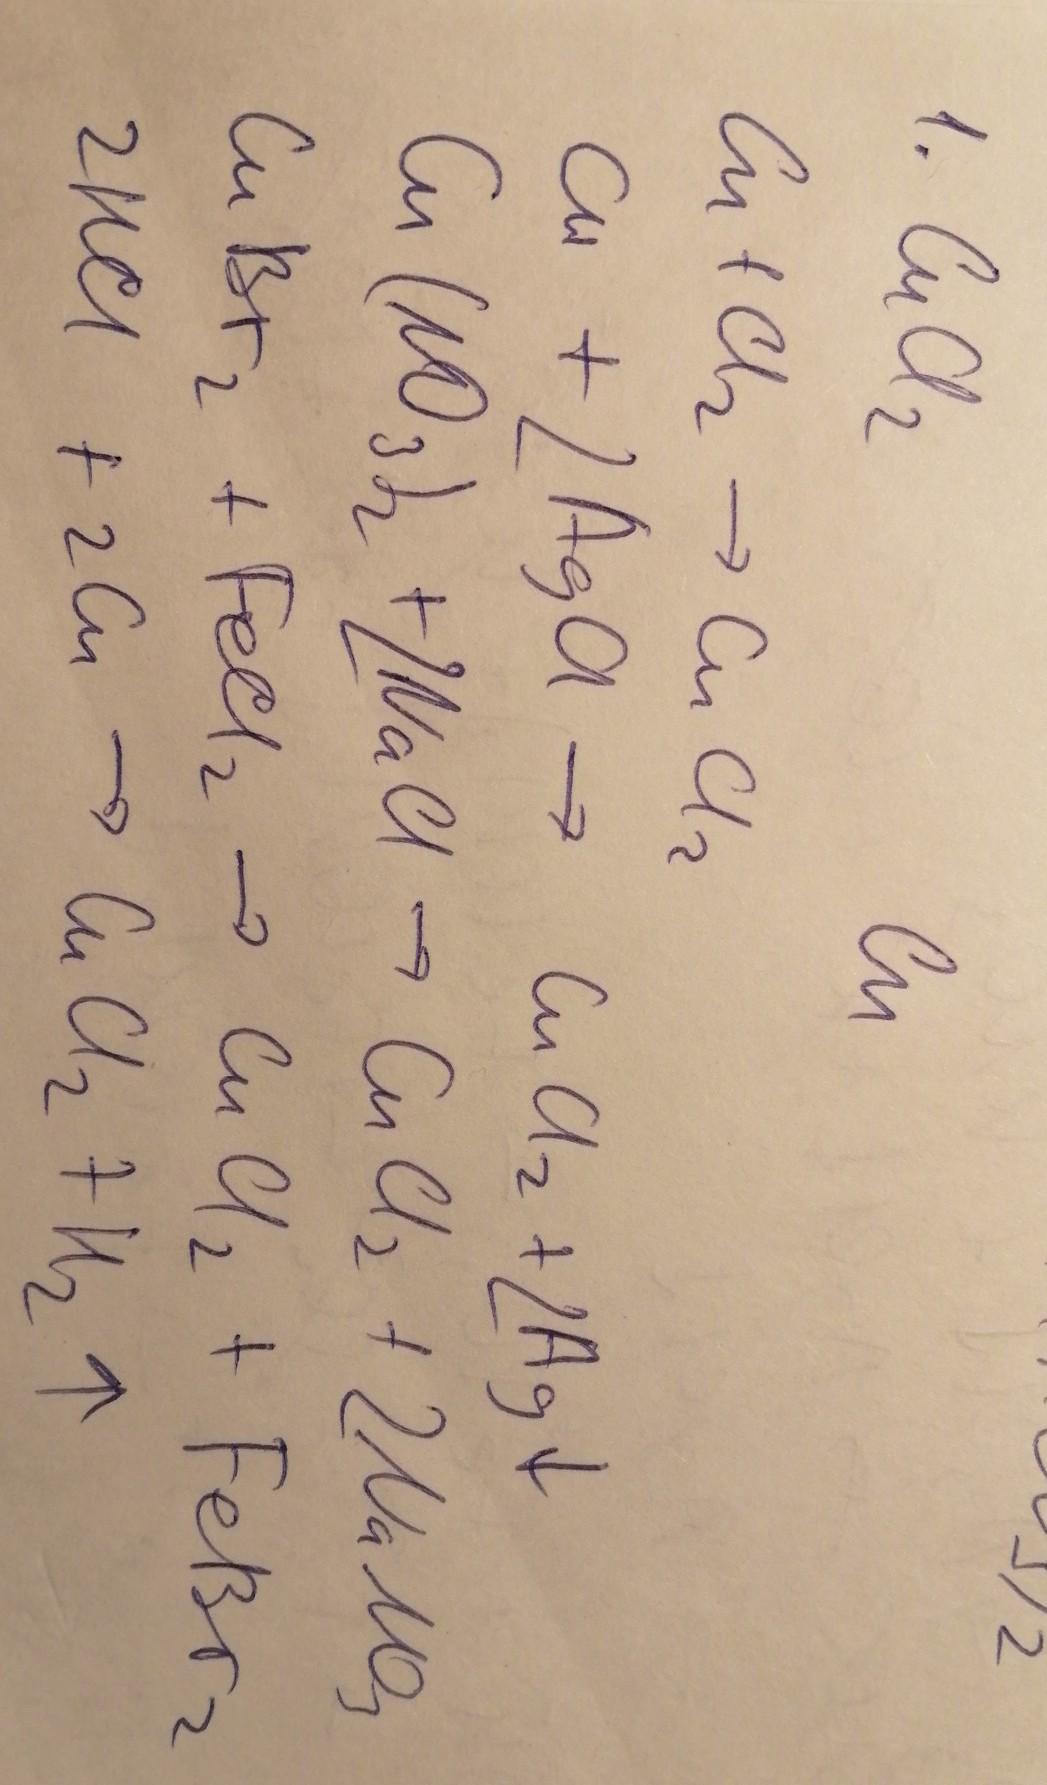 1. CuCl₂ Cu
Cu + Cl₂ → CuCl₂
Cu + 2AgCl → CuCl₂ + 2Ag↓
Cu(NO₃)₂ + 2NaCl → CuCl₂ + 2NaNO₃
CuBr₂ + FeCl₂ → CuCl₂ + FeBr₂
2HCl + 2Cu → CuCl₂ + H₂↑